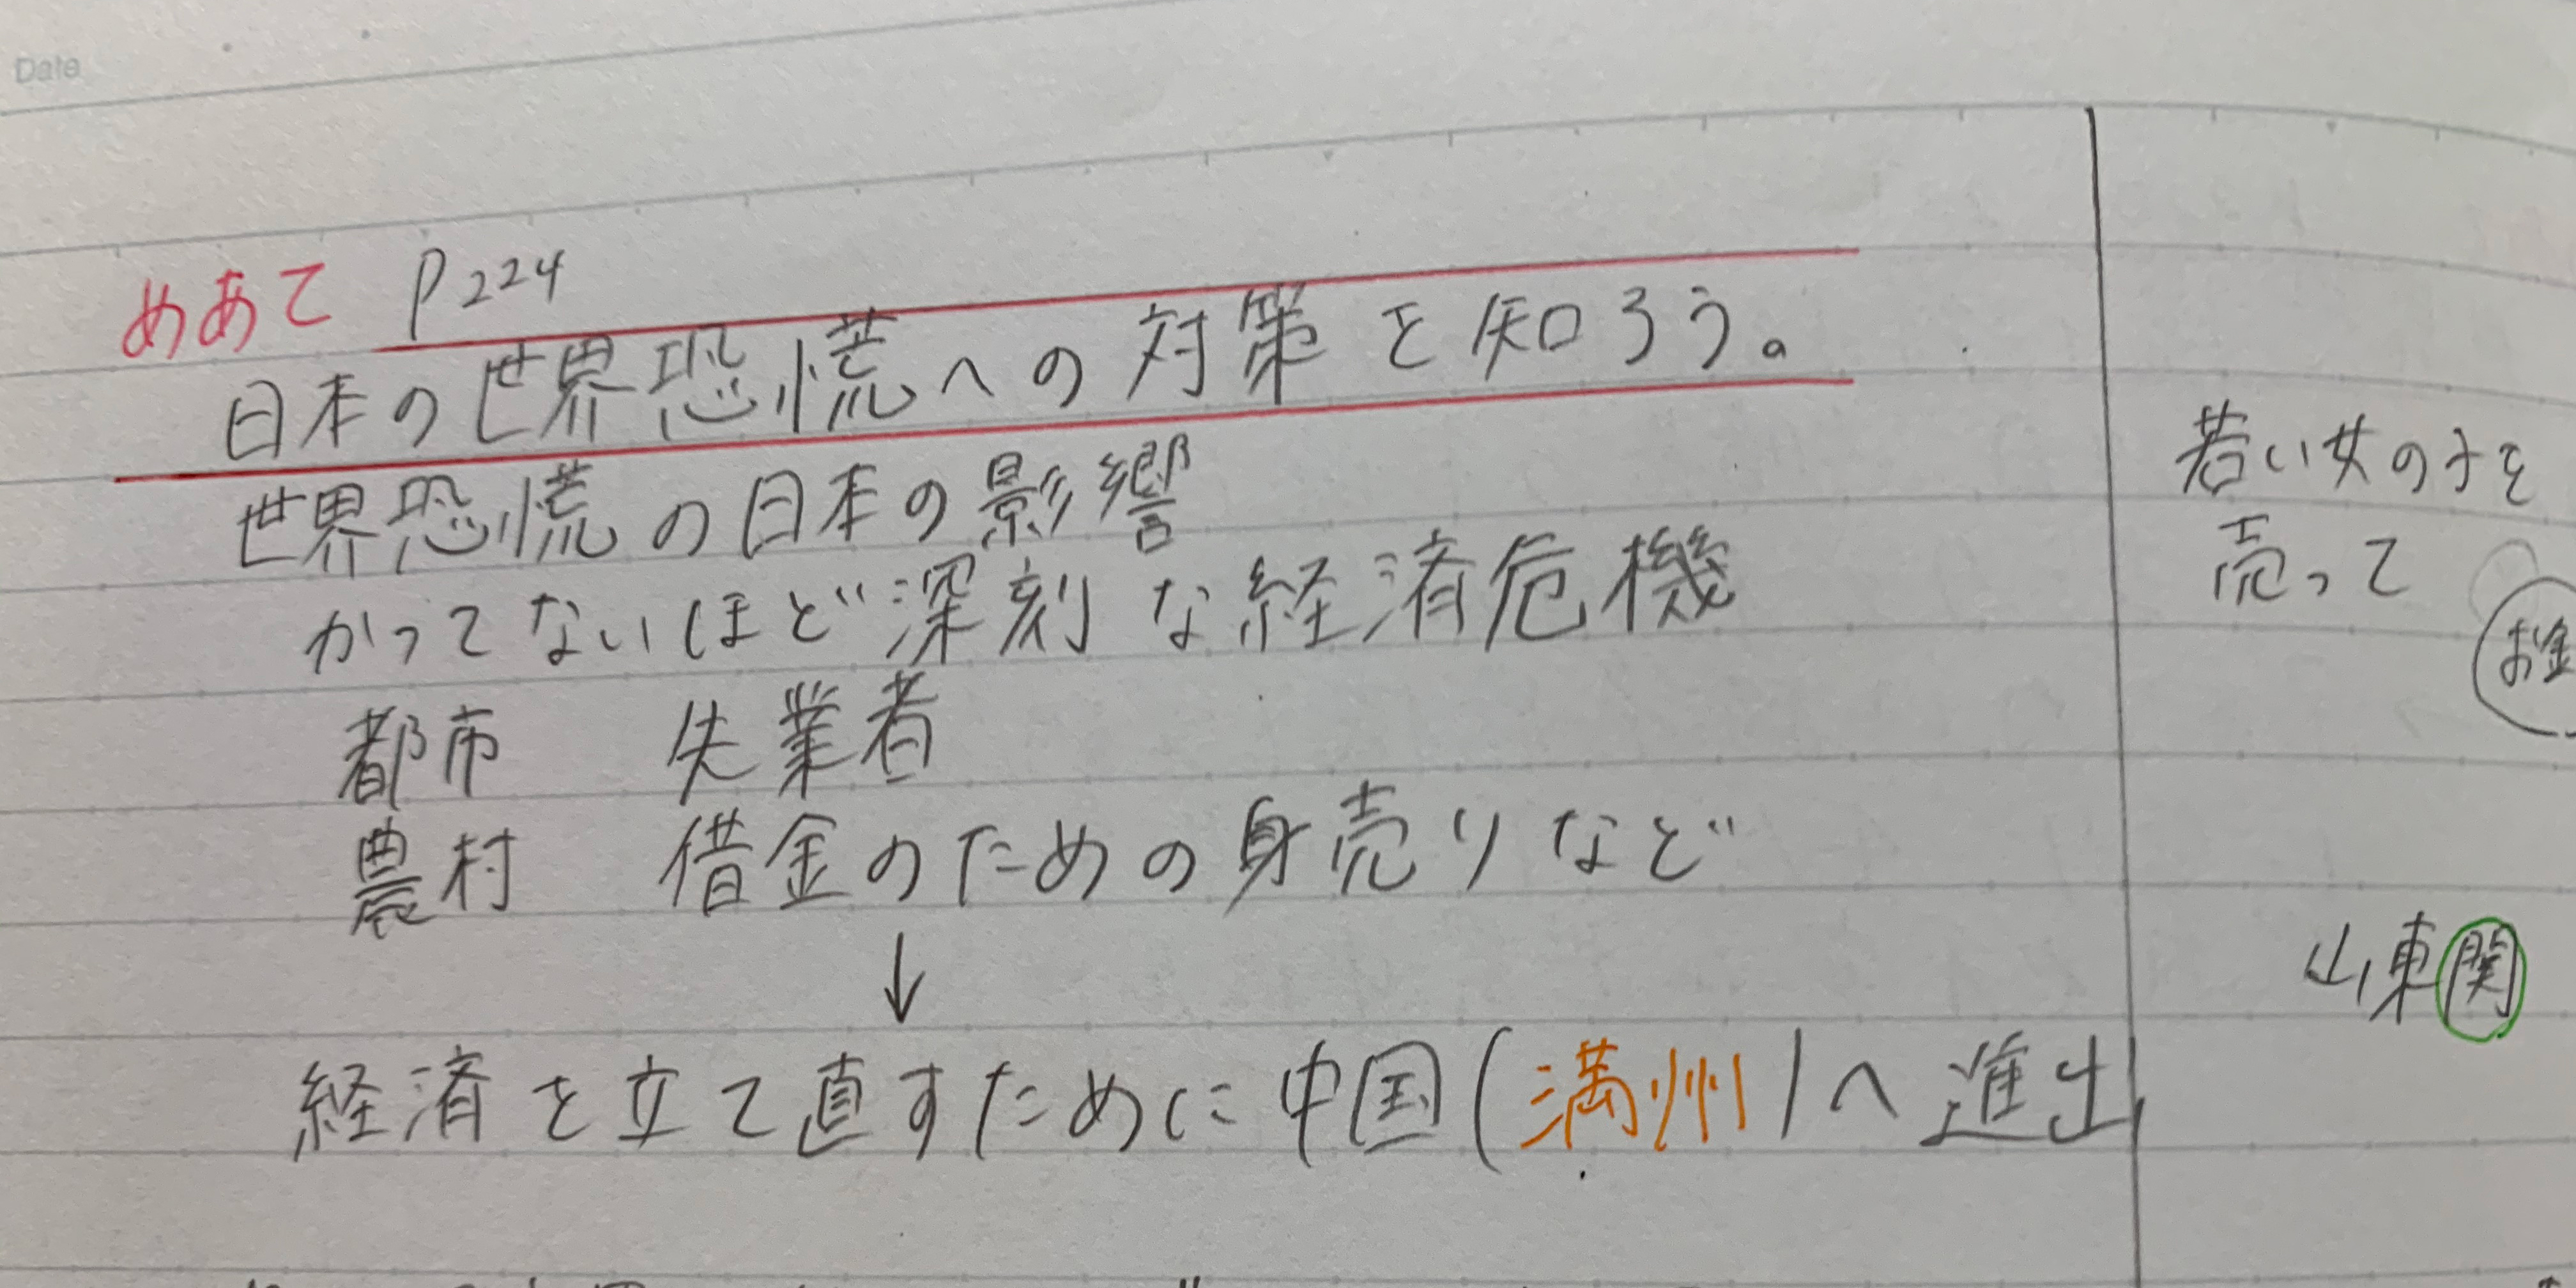 Date
めあて P224
日本の世界恐慌への対策を知ろう。
世界恐慌の日本の影響
かってないほど深刻な経済危機
都市 失業者
農村 借金のための身売りなど
↓
経済を立て直すために中国(満州)へ進出
若い女の子を
売って
お金
山東関